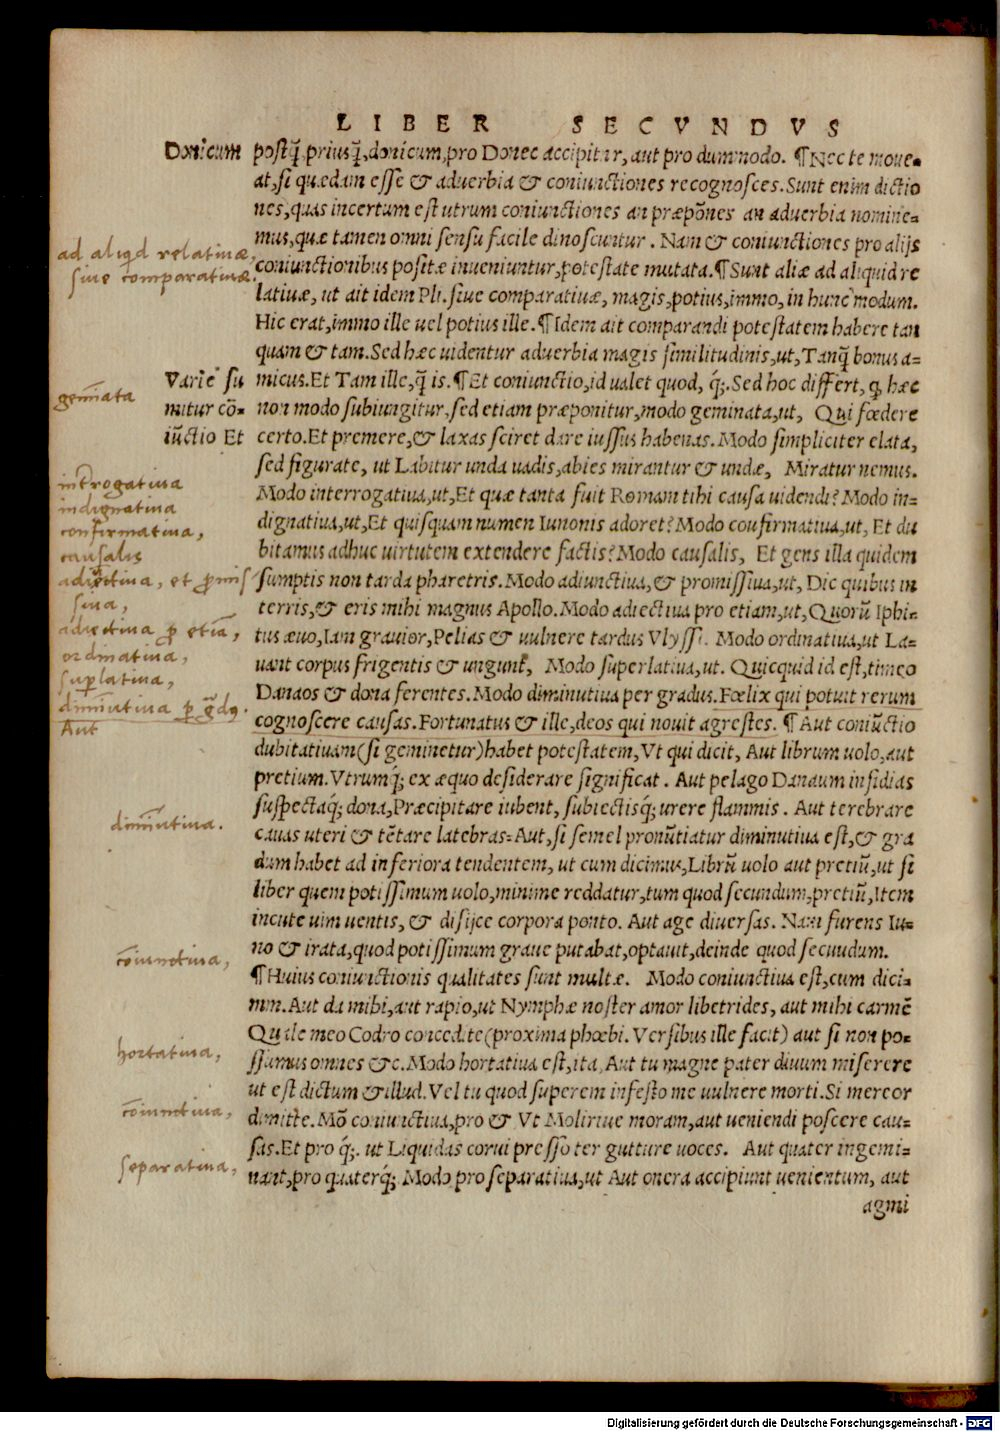 LIBER SECVNDVS
Donicum
postq̃, priusq̃, donicum, pro Donec accipitur, aut pro dummodo. ¶Nec te moue-
at, si quædam esse & aduerbia & coniunctiones recognosces. Sunt enim dictio
nes, quas incertum est utrum coniunctiones an præpõnes an aduerbia nomine-
mus, quæ tamen omni sensu facile dinoscuntur. Nam & coniunctiones pro alijs
ad aliqd relatiuæ,
siue comparatiuæ.
coniunctionibus positæ inueniuntur, potestate mutata. ¶Sunt aliæ ad aliquid re
latiuæ, ut ait idem Pli. siue comparatiuæ, magis, potius, immo, in hunc modum.
Hic erat, immo ille uel potius ille. ¶Idem ait comparandi potestatem habere tan
quam & tam. Sed hæc uidentur aduerbia magis similitudinis, ut, Tanq̃ bonus a-
Varie su
mitur cõ-
iũctio Et
gemĩata
micus. Et Tam ille, q̃ is. ¶Et coniunctio, id ualet quod, q́;. Sed hoc differt, ꝙ hæc
non modo subiungitur, sed etiam præponitur, modo geminata, ut, Qui fœdere
certo. Et premere, & laxas sciret dare iussus habenas. Modo simpliciter elata,
sed figurate, ut Labitur unda uadis, abies mirantur & undæ, Miratur nemus.
introgatiua
indignatiua
confirmatiua,
causalis
adiectiua, et ꝓmis
siua,
adiectiua ꝓ etiã,
ordinatiua,
suplatiua,
dimĩutiua ꝑ gdꝰ.
Aut
Modo interrogatiua, ut, Et quæ tanta fuit Romam tibi causa uidendi? Modo in-
dignatiua, ut, Et quisquam numen Iunonis adoret? Modo confirmatiua, ut, Et du
bitamus adhuc uirtutem extendere factis? Modo causalis, Et gens illa quidem
sumptis non tarda pharetris. Modo adiunctiua, & promissiua, ut, Dic quibus in
terris, & eris mihi magnus Apollo. Modo adiectiua pro etiam, ut, Quorũ Iphi-
tus æuo, Iam grauior, Pelias & uulnere tardus Vlyssi. Modo ordinatiua, ut La-
uant corpus frigentis & ungunt, Modo superlatiua, ut. Quicquid id est, timeo
Danaos & dona ferentes. Modo diminutiua per gradus. Fœlix qui potuit rerum
cognoscere causas. Fortunatus & ille, deos qui nouit agrestes. ¶Aut coniũctio
dubitatiuam (si geminetur) habet potestatem, Vt qui dicit, Aut librum uolo, aut
pretium. Vtrumq́; ex æquo desiderare significat. Aut pelago Danaum insidias
suspectaq́; dona, Præcipitare iubent, subiectisq́; urere flammis. Aut terebrare
dimĩutiua.
cauas uteri & tẽtare latebras. Aut, si semel pronũtiatur diminutiua est, & gra
dum habet ad inferiora tendentem, ut cum dicimus, Librũ uolo aut pretiũ, ut si
liber quem potissimum uolo, minime reddatur, tum quod secundum, pretiũ, Item
incute uim uentis, & disijce corpora ponto. Aut age diuersas. Nam furens Iu-
no & irata, quod potissimum graue putabat, optauit, deinde quod secuudum.
cõiunctiua,
¶Huius coniunctionis qualitates sunt multæ. Modo coniunctiua est, cum dici-
mm. Aut da mihi, aut rapio, ut Nymphæ noster amor libetrides, aut mihi carmẽ
Quale meo Codro concedite (proxima phœbi. Versibus ille facit) aut si non pos-
hortatiua,
sumus omnes &c. Modo hortatiua est, ita, Aut tu magne pater diuum miserere
ut est dictum & illud. Vel tu quod superem infesto me uulnere morti. Si mereor
cõiunctiua,
dimitte. Mõ coniunctiua, pro & Vt Moliriue moram, aut ueniendi poscere cau-
sas. Et pro q́;. ut Liquidas corui presso ter gutture uoces. Aut quater ingemi-
separatiua,
nant, pro quaterq́; Modo pro separatiua, ut Aut onera accipiunt uenientum, aut
agmi
Digitalisierung gefördert durch die Deutsche Forschungsgemeinschaft - DFG